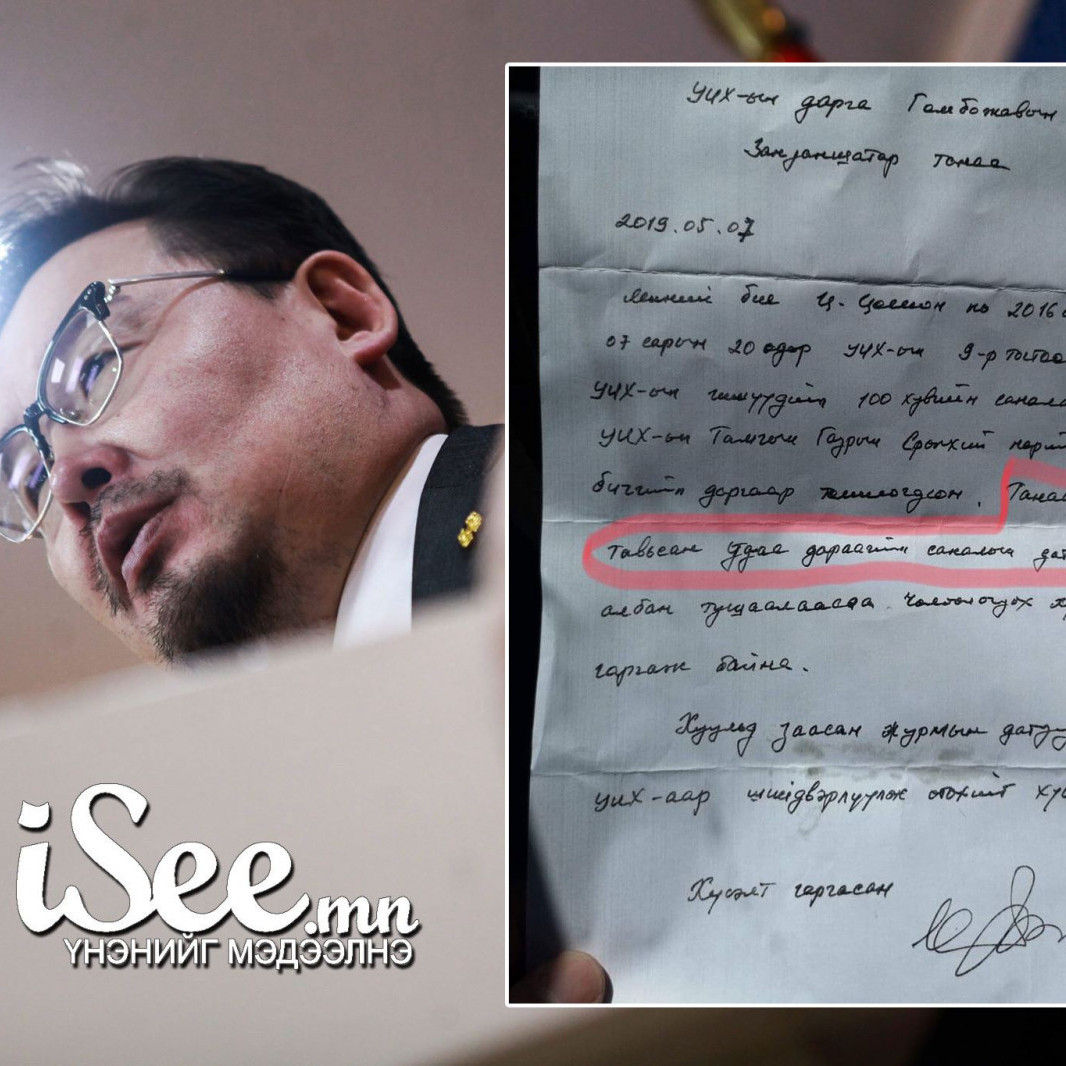 УИХ-ын дарга Гомбожавын
Занданшатар танаа
2019.05.07
Миний бие Ц. Цолмон нь 2016
07 сарын 20 өдөр УИХ-ын 9-р тогтоо
УИХ-ын гишүүдийн 100 хувийн санала
УИХ-ын Тамгын Газрын Ерөнхий нарий
бичгийн даргаар томилогдсон. Танаа
тавьсан удаа дараагийн саналын дагу
албан тушаалаасаа чөлөөлөгдөх х
гаргаж байна.
Хуульд заасан журмын дагуу
УИХ-аар шийдвэрлүүлж өгөхийг хүс
Хүсэлт гаргасан
iSee.mn
ҮНЭНИЙГ МЭДЭЭЛНЭ